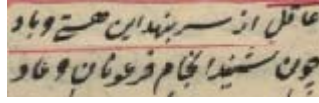 عاقل از سر بنهد این هستی و باد
چون شنید انجام فرعونان و عاد